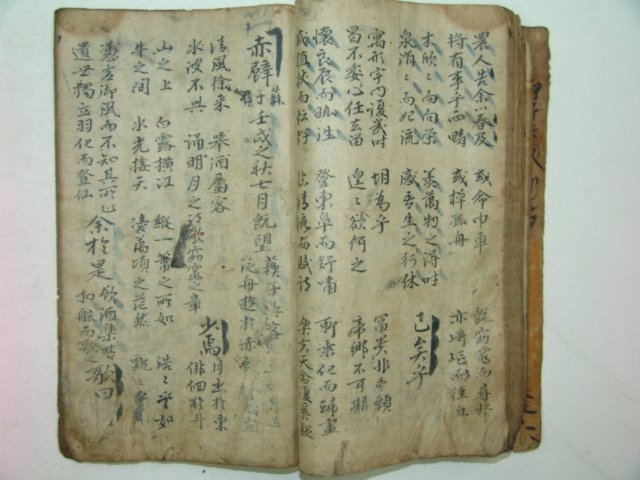 農人告余以春及
將有事乎西疇
或命巾車
或棹孤舟
旣窈窕而尋壑
亦崎嶇而經丘
木欣欣而向榮
泉涓涓而始流
羨萬物之得時
感吾生之行休
已矣乎
寓形宇內復幾時
曷不委心任去留
胡爲乎
遑〻欲何之
冨貴非吾願
帝鄉不可期
懷良辰而孤往
或植杖而耘耔
登東皐而舒嘯
臨清流而賦詩
聊乘化而歸盡
樂夫天命復奚疑
赤壁
壬戌之秋七月旣望
蘇子與客
泛舟遊於赤
清風徐來
水波不興
舉酒屬客
誦明月之詩歌窈窕之章
少焉
月出於東
山之上
徘徊於斗
牛之間
白露橫江
水光接天
縱一葦之所如
凌萬頃之茫然
浩〻乎如
憑虛御風而不知其所止
飄〻乎
遺世獨立羽化而登仙
余於是
飮酒樂甚
扣舷而歌之
歌曰